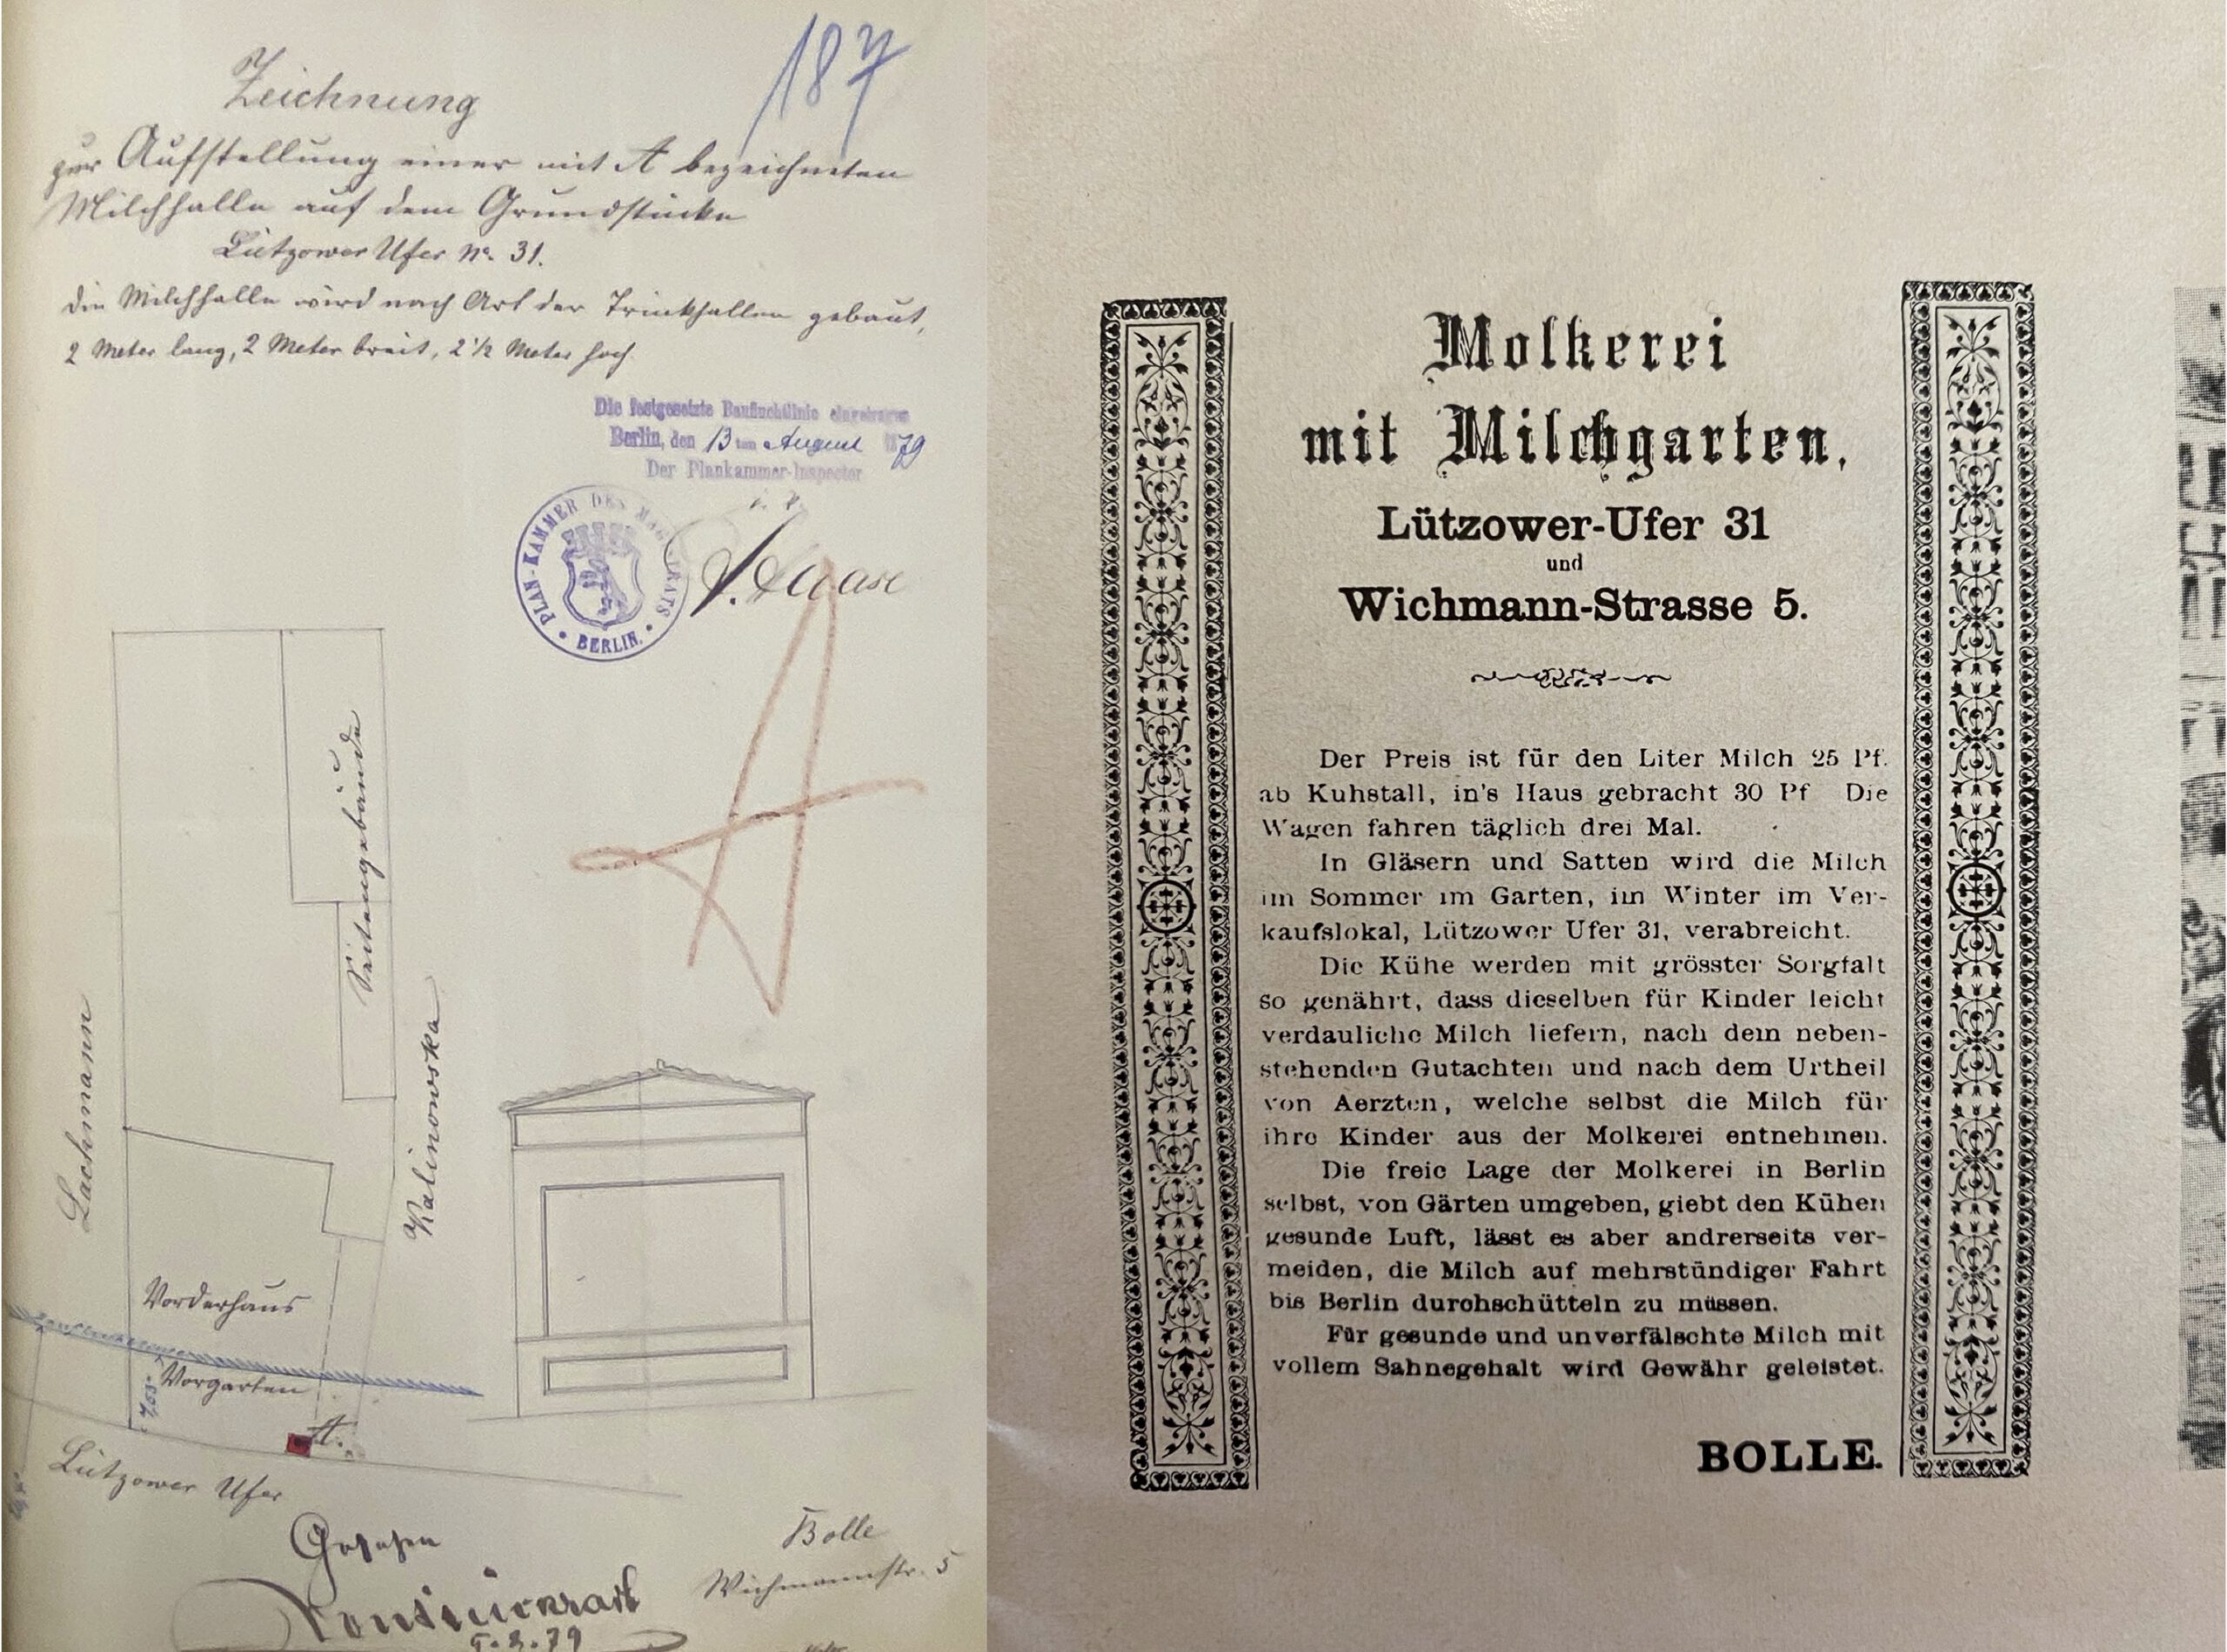 187
Zeichnung
zur Aufstellung einer mit A bezeichneten
Milchhalle auf dem Grundstücke
Lützower Ufer No. 31.
Die Milchhalle wird nach Art der Trinkhallen gebaut,
2 Meter lang, 2 Meter breit, 2 1/2 Meter hoch
Die festgesetzte Baufluchtlinie eingetragen
Berlin, den 13 ten August 1879
Der Plankammer-Inspector
PLAN-KAMMER DES MAGISTRATS
BERLIN.
Haase
A
Seitengebäude
Lachmann
Kalinowska
Vorderhaus
Vorgarten
A.
Lützower Ufer
Gesehen
Bolle
Wichmannstr. 5
Molkerei
mit Milchgarten,
Lützower-Ufer 31
und
Wichmann-Strasse 5.
Der Preis ist für den Liter Milch 25 Pf.
ab Kuhstall, in's Haus gebracht 30 Pf Die
Wagen fahren täglich drei Mal.
In Gläsern und Satten wird die Milch
im Sommer im Garten, im Winter im Ver-
kaufslokal, Lützower Ufer 31, verabreicht.
Die Kühe werden mit grösster Sorgfalt
so genährt, dass dieselben für Kinder leicht
verdauliche Milch liefern, nach dem neben-
stehenden Gutachten und nach dem Urtheil
von Aerzten, welche selbst die Milch für
ihre Kinder aus der Molkerei entnehmen.
Die freie Lage der Molkerei in Berlin
selbst, von Gärten umgeben, giebt den Kühen
gesunde Luft, lässt es aber andrerseits ver-
meiden, die Milch auf mehrstündiger Fahrt
bis Berlin durchschütteln zu müssen.
Für gesunde und unverfälschte Milch mit
vollem Sahnegehalt wird Gewähr geleistet.
BOLLE.